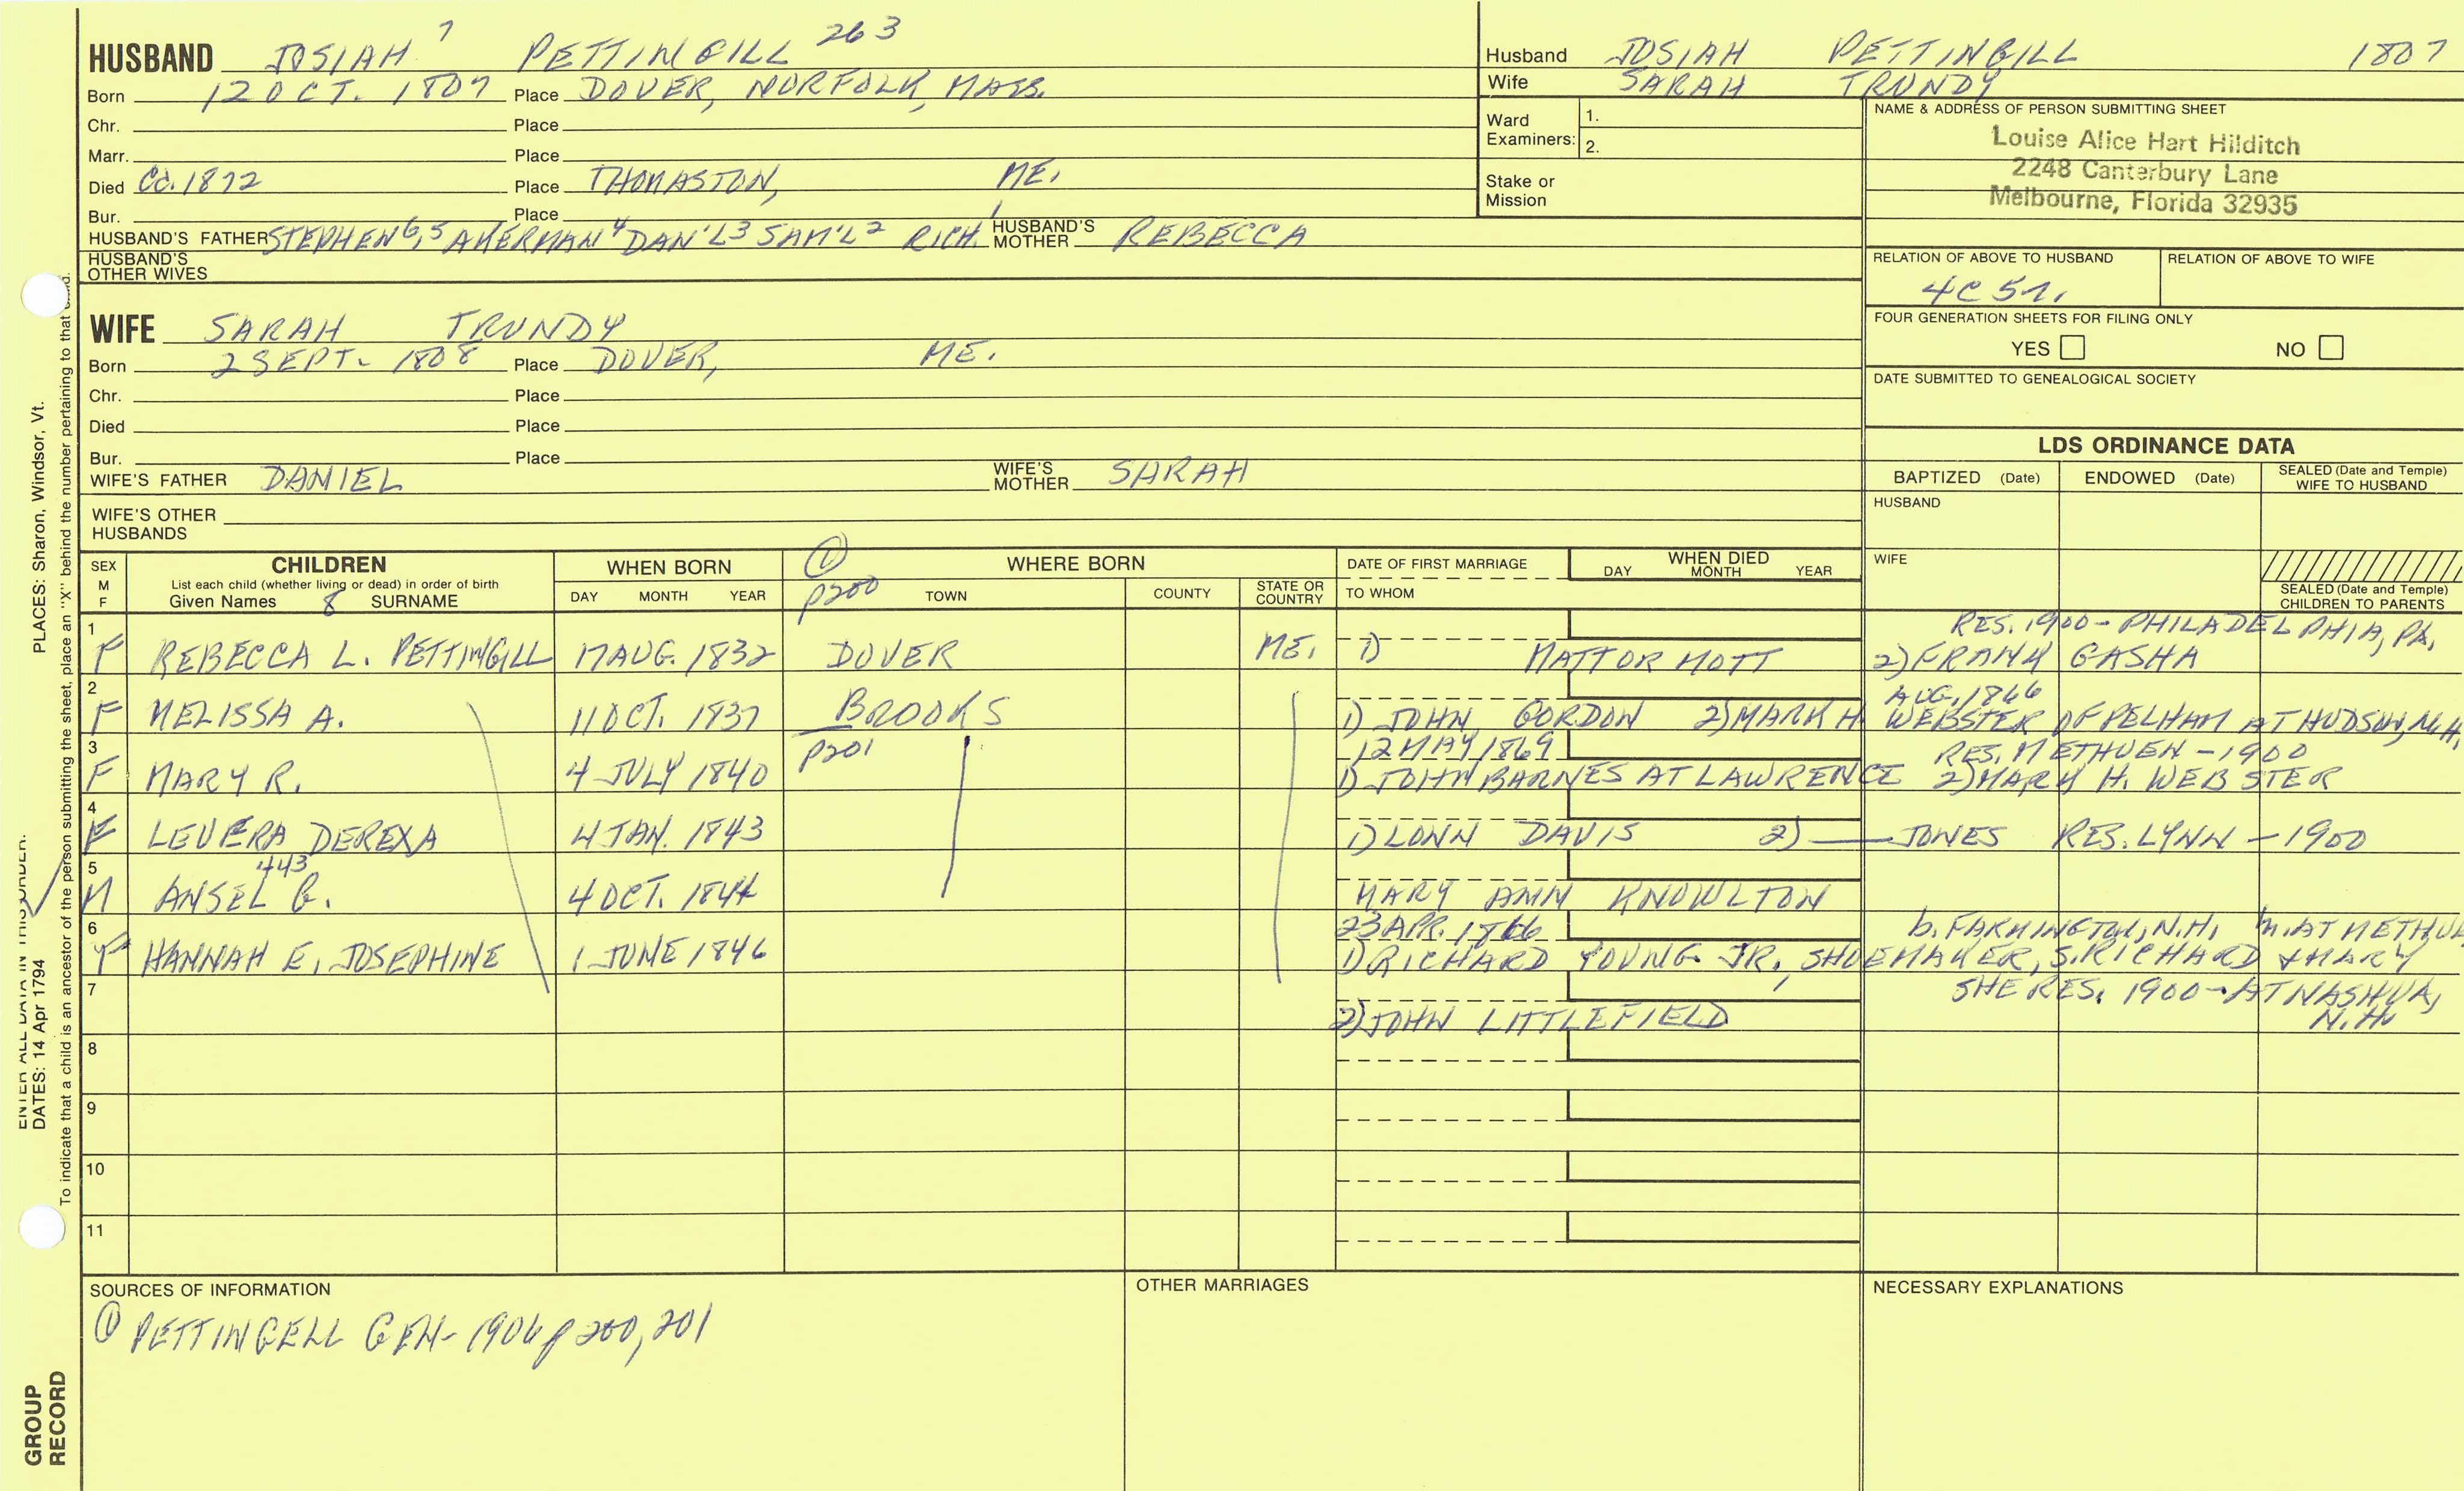 HUSBAND JOSIAH 7 PETTINGILL 263
Born 12 OCT. 1807 Place DOVER, NORFOLK, MASS.
Chr. Place
Marr. Place
Died Ca. 1872 Place THOMASTON, ME.
Bur. Place
HUSBAND'S FATHER STEPHEN 6, 5 AKERMAN 4 DAN'L 3 SAM'L 2 RICH. 1 HUSBAND'S MOTHER REBECCA
HUSBAND'S OTHER WIVES
Husband JOSIAH PETTINGILL 1807
Wife SARAH TRUNDY
Ward Examiners: 1.
2.
Stake or Mission
NAME & ADDRESS OF PERSON SUBMITTING SHEET
Louise Alice Hart Hilditch
2248 Canterbury Lane
Melbourne, Florida 32935
RELATION OF ABOVE TO HUSBAND RELATION OF ABOVE TO WIFE
4C 5
FOUR GENERATION SHEETS FOR FILING ONLY
YES NO
DATE SUBMITTED TO GENEALOGICAL SOCIETY
WIFE SARAH TRUNDY
Born 2 SEPT. 1808 Place DOVER, ME.
Chr. Place
Died Place
Bur. Place
WIFE'S FATHER DANIEL WIFE'S MOTHER SARAH
WIFE'S OTHER HUSBANDS
LDS ORDINANCE DATA
BAPTIZED (Date) ENDOWED (Date) SEALED (Date and Temple) WIFE TO HUSBAND
HUSBAND
WIFE
SEALED (Date and Temple) CHILDREN TO PARENTS
SEX M F CHILDREN WHEN BORN ① WHERE BORN DATE OF FIRST MARRIAGE WHEN DIED
List each child (whether living or dead) in order of birth
Given Names 8 SURNAME DAY MONTH YEAR p200 TOWN COUNTY STATE OR COUNTRY TO WHOM DAY MONTH YEAR
RES. 1900 - PHILADELPHIA, PA.
1 F REBECCA L. PETTINGILL 17 AUG. 1832 DOVER ME. 1) MATT OR MOTT 2) FRANK GASHA
AUG. 1866
2 F MELISSA A. 11 OCT. 1837 BROOKS 1) JOHN GORDON 2) MARK H. WEBSTER OF PELHAM AT HUDSON, N.H.
p201 12 MAY 1869 RES. METHUEN - 1900
3 F MARY R. 4 JULY 1840 1) JOHN BARNES AT LAWRENCE 2) MARK H. WEBSTER
4 F LEVERA DEREXA 4 JAN. 1843 1) LONN DAVIS 2) — JONES RES. LYNN - 1900
443
5 M ANSEL G. 4 OCT. 1844 MARY ANN KNOWLTON
23 APR. 1866 b. FARMINGTON, N.H. m. AT METHUE
6 F HANNAH E. JOSEPHINE 1 JUNE 1846 1) RICHARD YOUNG JR., SHOEMAKER, S. RICHARD & MARY
7 SHE RES. 1900 - AT NASHUA, N.H.
2) JOHN LITTLEFIELD
8
9
10
11
SOURCES OF INFORMATION
① PETTINGELL GEN - 1906 p 200, 201
OTHER MARRIAGES
NECESSARY EXPLANATIONS
PLACES: Sharon, Windsor, Vt.
ENTER ALL DATA IN THIS ORDER:
DATES: 14 Apr 1794
To indicate that a child is an ancestor of the person submitting the sheet, place an "X" behind the number pertaining to that child.
GROUP RECORD